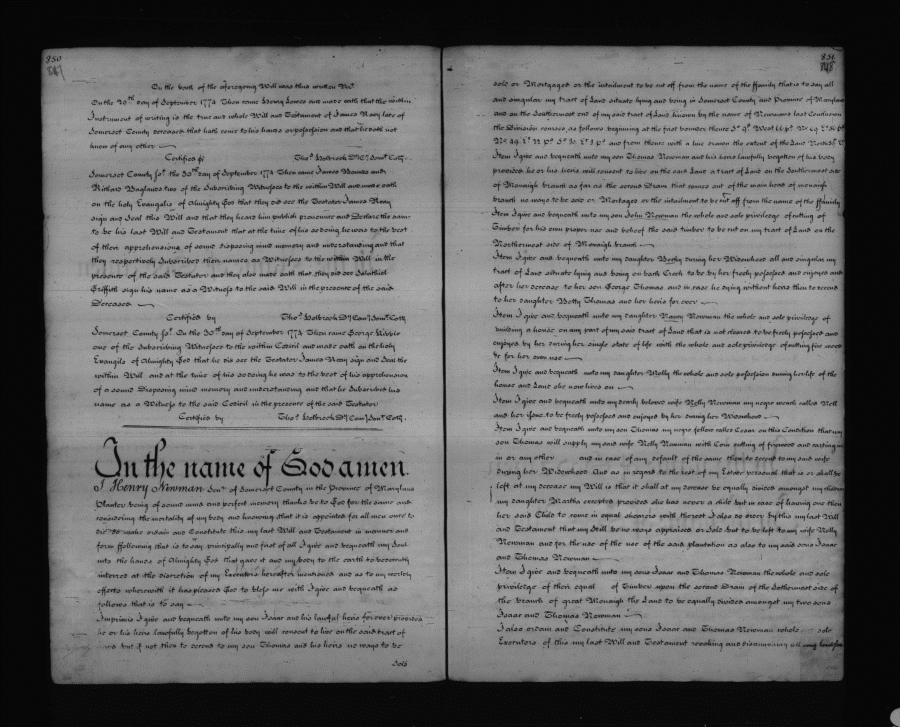 350
347
On the back of the aforegoing Will was thus written Viz.
On the 30th day of September 1774 Then came Henry Lowes and made oath that the within
Instrument of writing is the true and whole Will and Testament of James Rcay late of
Somerset County deceased that hath come to his hands or possession and that he doth not
know of any other
Certified by Thos. Holbrook Dy. Comy. Somt. Coty.
Somerset County Sst. the 30th day of September 1774 Then came James and
Richard two of the Subscribing Witnesses to the within Will and made oath
on the holy Evangelis of Almighty God that they did see the Testator James
sign and Seal this Will and that they heard him publish pronounce and Declare the same
to be his last Will and Testament that at the time of his so doing he was to the best
of their apprehensions of sound disposing mind memory and understanding and that
they respectively Subscribed their names as Witnesses to the within Will in the
presence of the said Testator and they also made oath that they did see
Griffith sign his name as a Witness to the said Will in the presence of the said
Deceased
Certified by Thos. Holbrook Dy. Comy. Somt. Coty.
Somerset County Sst. On the 30th day of September 1774 Then came George
one of the Subscribing Witnesses to the within Codicil and made oath on the holy
Evangelis of Almighty God that he did see the Testator James sign and Seal the
within Will and at the time of his so doing he was to the best of his apprehension
of a sound Disposing mind memory and understanding and that he Subscribed his
name as a Witness to the said Codicil in the presence of the said Testator
Certified by Thos. Holbrook Dy. Comy. Somt. Coty.
In the name of God amen.
I Henry Newman Senr. of Somerset County in the Province of Maryland
Planter being of sound mind and perfect memory thanks be to God for the same and
considering the mortality of my body and knowing that it is appointed for all men once to
die do make ordain and Constitute this my last Will and Testament in manner and
form ffollowing that is to say principally and first of all I give and bequeath my Soul
into the hands of Almighty God that gave it and my body to the earth to be decently
interred at the discretion of my Executors hereafter mentioned and as to my worldly
effects wherewith it has pleased God to bless me with I give and bequeath as
follows that is to say
Imprimis I give and bequeath unto my son Isaac and his lawful heirs for ever provided
he or his heirs lawfully begotten of his body will consent to live on the said tract of
but if not then to decend to my son Thomas and his heirs no ways to be
Sold
351
348
sold or Mortgaged or the intailment to be cut off from the name of the ffamily that is to say all
and singular my tract of Land situate lying and being in Somerset County and Province of Maryland
and on the Southermost end of my said tract of Land known by the name of Newmans last Conclusion
the Division courses, as follows beginning at the first bounder thence
and from thence with a line drawn the extent of the Land
Item I give and bequeath unto my son Thomas Newman and his heirs lawfully begotten of his body
provided he or his heirs will consent to live on the said Land a tract of Land on the Southermost side
of Monaigh branch as far as the second Dram that comes out of the main head of monaigh
branch no ways to be sold or Mortaged or the intailment to be cut off from the name of the ffamily
Item I give and bequeath unto my son John Newman the whole and sole priviledge of cutting of
Timber for his own proper use and behoof the said timber to be cut on my tract of Land on the
Northermost side of Monaigh branch
Item I give and bequeath unto my daughter Betty during her Widowhood all and singular my
tract of Land situate lying and being on back Creek to be by her freely possessed and enjoyed and
after her decease to her son George Thomas and in case he dying without heirs then to decend
to her daughter Betty Thomas and her heirs for ever
Item I give and bequeath unto my daughter Nanny Newman the whole and sole privilege of
building a house on any part of my said tract of Land that is not cleared to be freely possessed and
enjoyed by her during her single state of life with the whole and sole priviledge of cutting fire wood
&c for her own use
Item I give and bequeath unto my daughter Molly the whole and sole possession during her life of the
house and Land she now lives on
Item I give and bequeath unto my dearly beloved wife Nelly Newman my negro wench called Nell
and her Jane to be freely possessed and enjoyed by her during her Widowhood
Item I give and bequeath unto my son Thomas my negro fellow called Cesar on this Condition that my
son Thomas will supply my said wife Nelly Newman with Corn cutting of firewood and carting in
in or any other and in case of any default of the same then to decend to my said wife
during her Widowhood And as in regard to the rest of my Estate personal that is or shall be
left at my decease my Will is that it shall at my decease be equally divided amongst my children
my daughter Martha excepted provided she has never a child but in case of having one then
her said Child to come in equal sharers with the rest I also do order by this my last Will
and Testament that my Still be no ways appraised or Sold but to be left to my wife Nelly
Newman and for the use of the use of the said plantation as also to my said sons Isaac
and Thomas Newman
Item I give and bequeath unto my sons Isaac and Thomas Newman the whole and sole
priviledge of their equal of Timber upon the second Dram of the Sothermost side of
the branch of great Monaigh the Land to be equally divided amongst my two sons
Isaac and Thomas Newman
I also ordain and Constitute my sons Isaac and Thomas Newman whole sole
Executors of this my last Will and Testament revoking and disannuling all